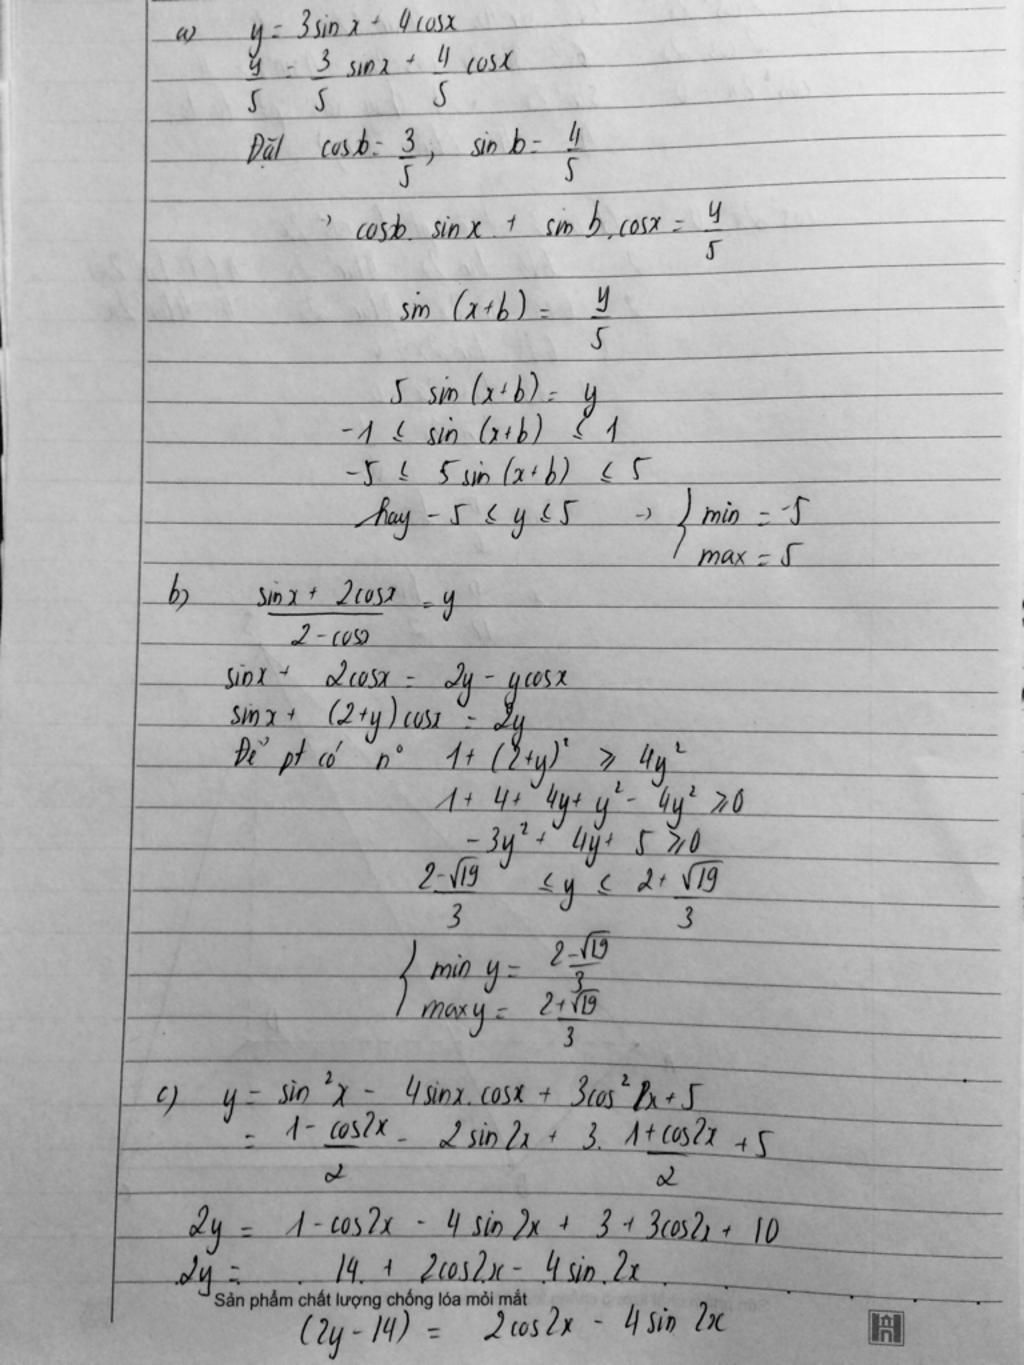 a) y = 3sinx + 4cosx
y/5 = 3/5 sinx + 4/5 cosx
Đặt cosb = 3/5, sinb = 4/5
→ cosb. sinx + sinb.cosx = y/5
sin (x+b) = y/5
5 sin (x+b) = y
-1 ≤ sin (x+b) ≤ 1
-5 ≤ 5sin(x+b) ≤ 5
hay -5 ≤ y ≤ 5 → { min = -5
max = 5
b) (sinx + 2cosx)/(2-cosx) = y
sinx + 2cosx = 2y - ycosx
sinx + (2+y)cosx = 2y
Để pt có n° 1 + (2+y)² ≥ 4y²
1 + 4 + 4y + y² - 4y² ≥ 0
-3y² + 4y + 5 ≥ 0
(2-√19)/3 ≤ y ≤ (2+√19)/3
{ min y = (2-√19)/3
max y = (2+√19)/3
c) y = sin²x - 4sinx.cosx + 3cos²x + 5
= (1-cos2x)/2 - 2sin2x + 3. (1+cos2x)/2 + 5
2y = 1-cos2x - 4sin2x + 3 + 3cos2x + 10
2y = 14 + 2cos2x - 4sin2x
Sản phẩm chất lượng chống lóa mỏi mắt
(2y-14) = 2cos2x - 4sin2x